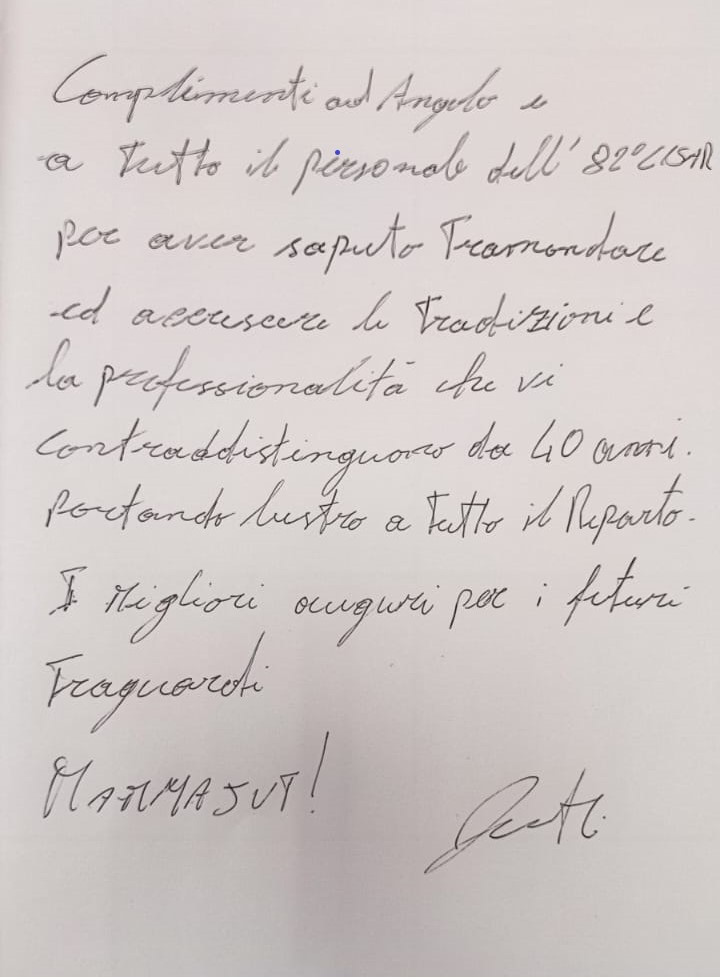 Complimenti ad Angelo e
a Tutto il personale dell' 82° CSAR
per aver saputo Tramandare
ed accrescere le Tradizioni e
la professionalità che vi
contraddistinguono da 40 anni.
Portando lustro a Tutto il Reparto.
I Migliori auguri per i futuri
Traguardi
MARMAJUT!